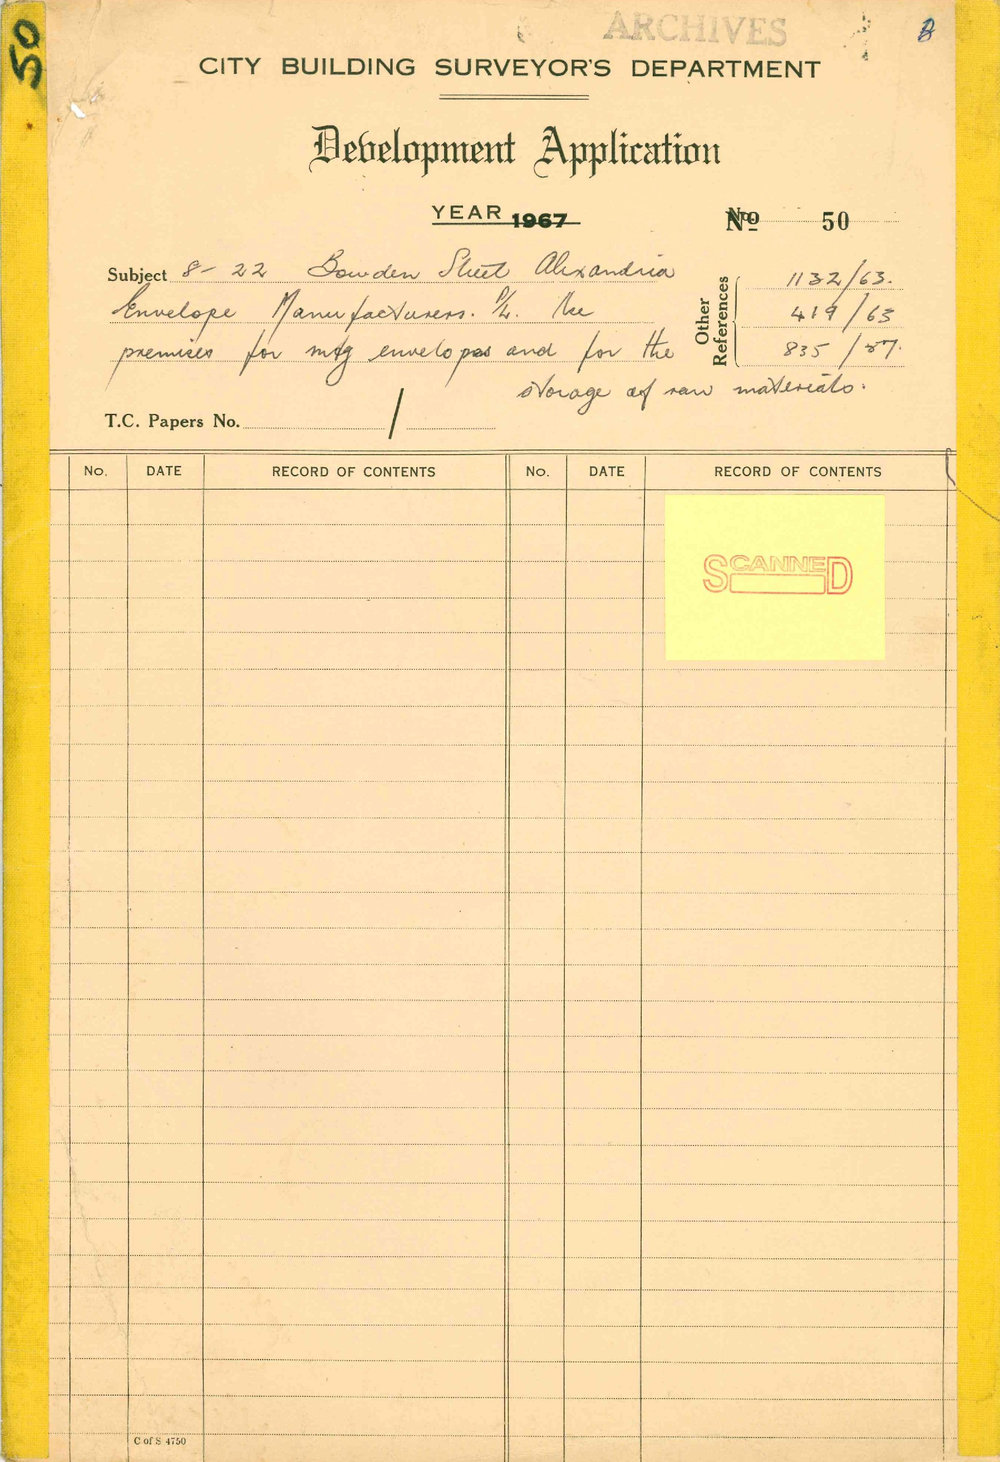 50
ARCHIVES
B
CITY BUILDING SURVEYOR'S DEPARTMENT
Development Application
YEAR 1967
No 50
Subject 8-22 Bowden Street Alexandria
Envelope Manufacturers. P/L. Use
premises for mfg envelopes and for the
storage of raw materials.
Other References
1132/63.
419/63
835/57.
T.C. Papers No. /
No. DATE RECORD OF CONTENTS No. DATE RECORD OF CONTENTS
SCANNED
C of S 4750